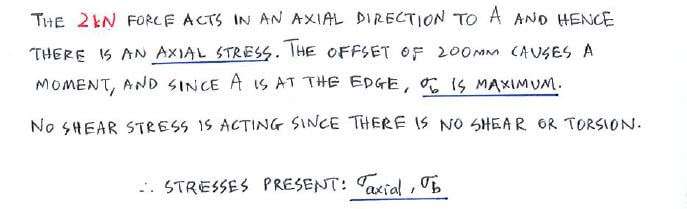 THE 2kN FORCE ACTS IN AN AXIAL DIRECTION TO A AND HENCE
THERE IS AN AXIAL STRESS. THE OFFSET OF 200MM CAUSES A
MOMENT, AND SINCE A IS AT THE EDGE, σb IS MAXIMUM.
NO SHEAR STRESS IS ACTING SINCE THERE IS NO SHEAR OR TORSION.
∴ STRESSES PRESENT: σaxial, σb